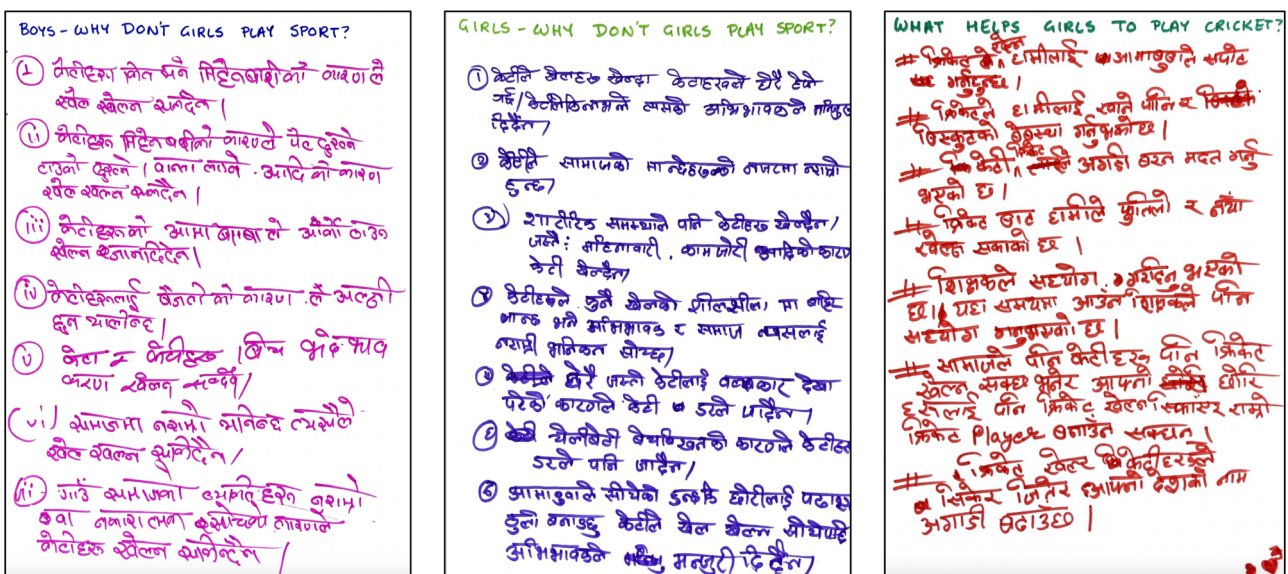 BOYS - WHY DON'T GIRLS PLAY SPORT?
केटीहरू मिहिनाबारीको कारणले
खेल खेल्न सक्दैन।
(ii) केटीहरू मिहिनाबारीको कारणले पेट दुख्ने
टाउको दुख्ने। वान्ता लाग्ने. आदि को कारण
खेल खेल्न सक्दैन।
(iii) केटीहरूको आमा बुवाले अर्को ठाउँ
खेल्न जानदिदैन।
(iv) केटीहरूलाई को कारण ले अल्छी
हुन थाल्नेछ।
(v) केटा र केटीहरू बिच भेदभाव
कारण खेल्न सक्दैन।
(vi) समाजमा नराम्रो भनिन्छ त्यसैले
खेल खेल्न सकिदैन।
गाउँ समाजका व्यक्तिहरू नराम्रो
वा नकारात्मक कारणले
केटीहरू खेल्न
GIRLS - WHY DON'T GIRLS PLAY SPORT?
① केटीले खेलहरू खेल्दा केटाहरूले धेरै हेप्ने
गर्छ। त्यसको अभिभावकले
दिदैन।
② केटीले सामाजको मान्छेहरूको नजरमा नराम्रो
हुन्छ।
शारीरिक समस्याले पनि केटीहरू खेल्दैन।
जस्तै: महिनावारी, कमजोरी कारण
केटी खेल्दैन।
केटीहरूले कुनै खेलको शीलसीला मा बाहिर
जान्छ भने अभिभावक र समाज त्यसलाई
नराम्रो सोच्छ।
धेरै जस्तो केटीलाई बलात्कार देखा
परेको कारणले केटी डरले जादैन।
चेलीबेटी बेचबिखनको कारणले केटीहरू
डरले पनि जादैन।
आमाबुवाले सोचेको हुन्छ छोरीलाई पढाएर
ठुलो बनाउछु केटीले खेल खेल्न
अभिभावकले मन्जुरी दिदैन।
WHAT HELPS GIRLS TO PLAY CRICKET?
# क्रिकेट खेल्न हामीलाई आमाबुबाले सपोट
गर्नुहुन्छ।
# क्रिकेटले हामीलाई खाने पानि र
बिस्कुटको गर्नुभएको छ।
# केटी क्रिकेट अगाडी बढ्न मदत गर्नु
भएको छ।
# क्रिकेट बाट हामीले फुर्तिलो र नयाँ
खेल्न सकेको छ।
# शिक्षकले सहयोग गरिदिनु भएको
छ। यहा समयमा आउन शिक्षकले पनि
सहयोग गर्नुभएको छ।
# सामाजले पनि केटीहरू पनि क्रिकेट
खेल्न सक्छ भनेर आफ्नो छोरि
हरूलाई पनि क्रिकेट खेल्न सिकाएर राम्रो
क्रिकेट Player बनाउन सक्छन।
# क्रिकेट खेलेर केटीहरूले
सिकेर जितेर आफ्नो देशको नाम
अगाडी बढाउँछ।